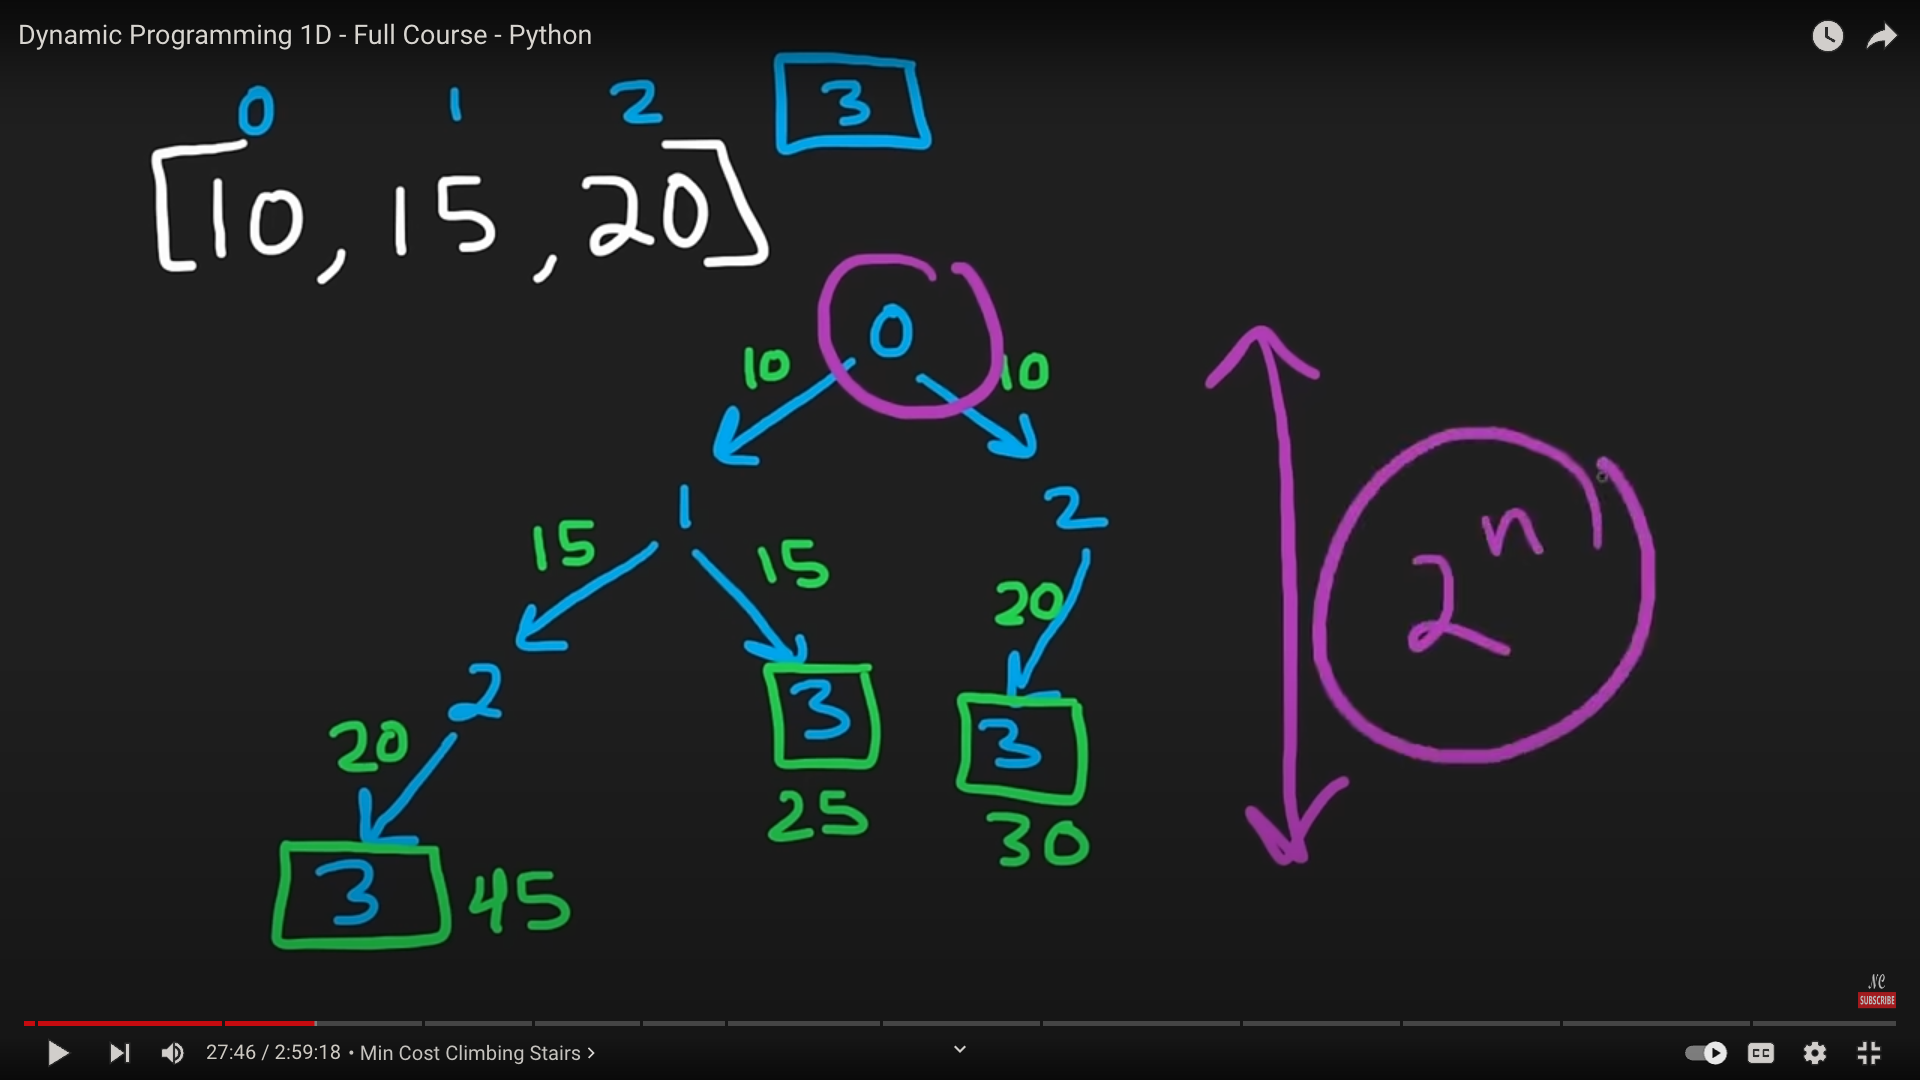 Dynamic Programming 1D - Full Course - Python
0 1 2 3
[10, 15, 20]
0
10 10
1 2
15 15 20
2 3 3
20 25 30
3 45
2ⁿ
NC
SUBSCRIBE
27:46 / 2:59:18 • Min Cost Climbing Stairs >
CC